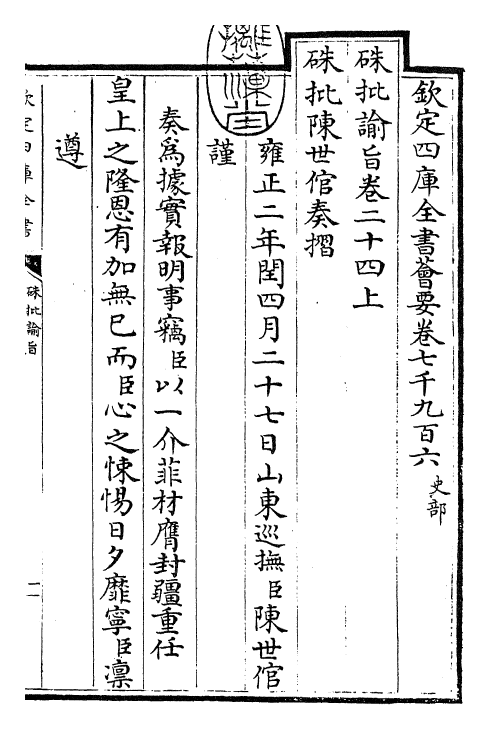 欽定四庫全書薈要卷七千九百六 史部
硃批諭旨卷二十四上
硃批陳世倌奏摺
雍正二年閏四月二十七日山東巡撫臣陳世倌
謹
奏為據實報明事竊臣以一介菲材膺封疆重任
皇上之隆恩有加無已而臣心之悚惕日夕靡寧臣凛
遵
欽定四庫全書
硃批諭旨
一